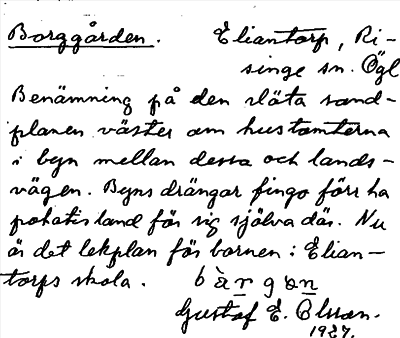 Borggården. Eliantorp, Ri-
singe sn. Ögl
Benämning på den släta sand-
planen väster om hustomterna
i byn mellan dessa och lands-
vägen. Byns drängar fingo förr ha
potatisland för sig själva där. Nu
är det lekplan för barnen i Elian-
torps skola. bàrgon
Gustaf E. Olsson.
1927.